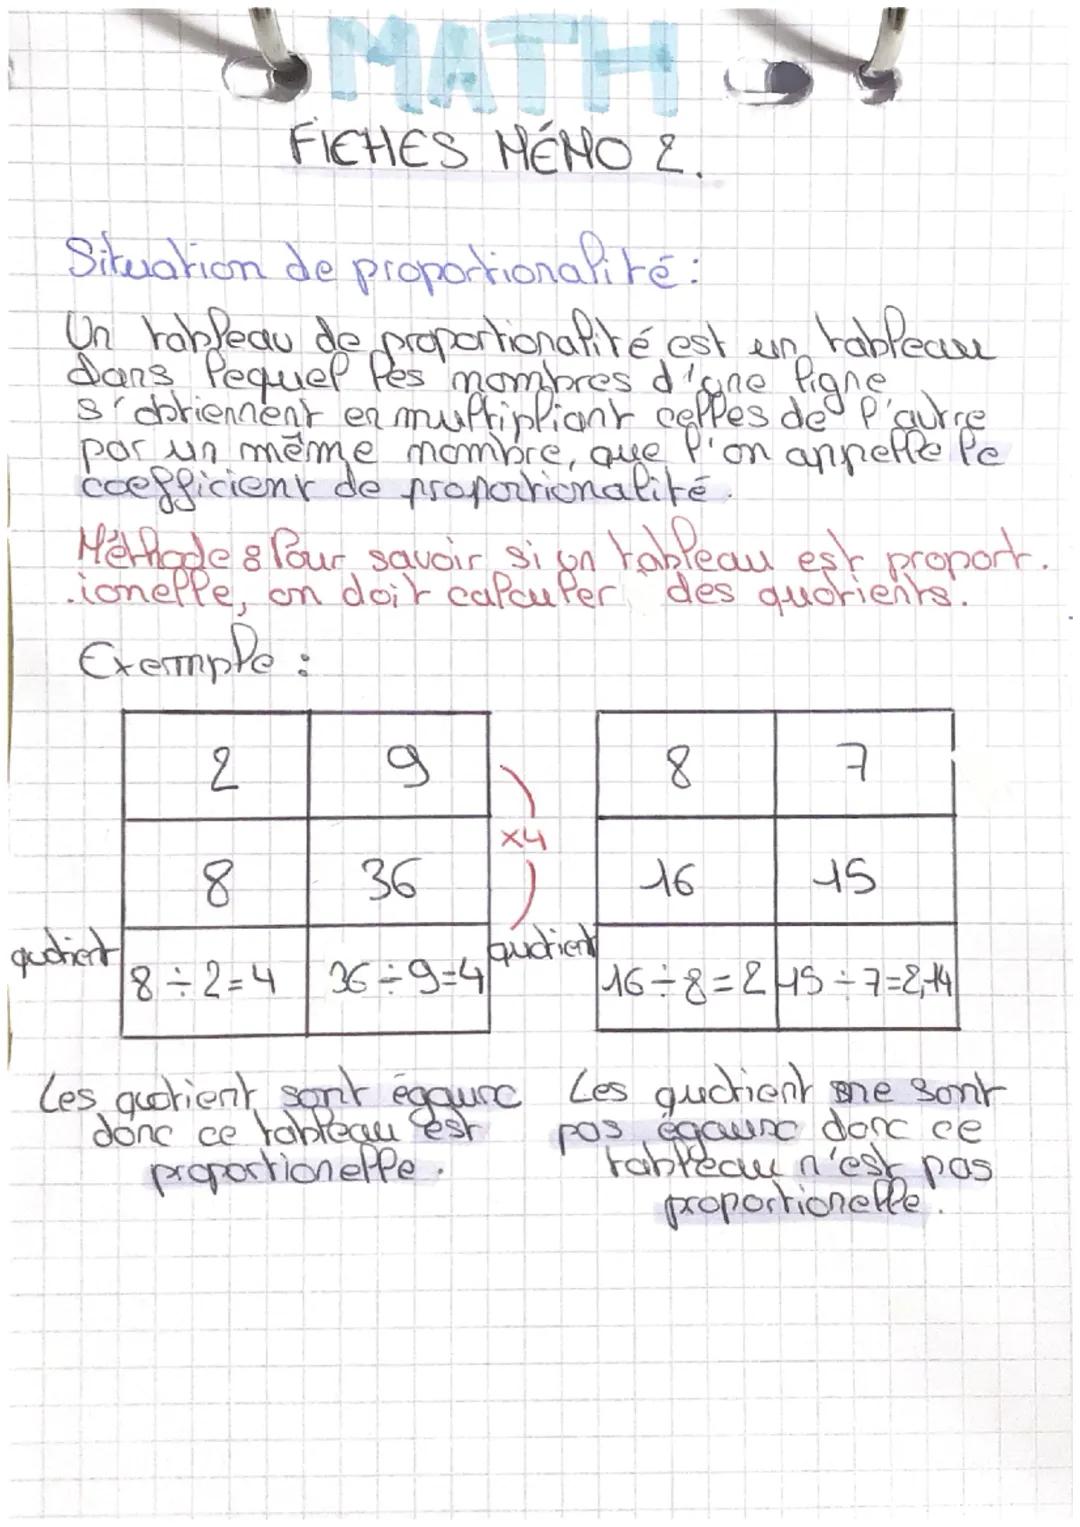 MATH
FICHES MÉMO 2.
Situation de proportionalité :
Un tableau de proportionalité est un tableau
dans lequel les nombres d'une ligne
s'obtiennent en multipliant celles de l'autre
par un même nombre, que l'on appelle le
coefficient de proportionalité.
Méthode : Pour savoir si un tableau est proport.
.ionelle, on doit calculer des quotients.
Exemple :
2 9 8 7
x4
8 36 16 15
quotient 8÷2=4 36÷9=4 quotient 16÷8=2 15÷7=2,14
Les quotient sont égaux
donc ce tableau est
proportionelle.
Les quotient ne sont
pas égaux donc ce
tableau n'est pas
proportionelle.